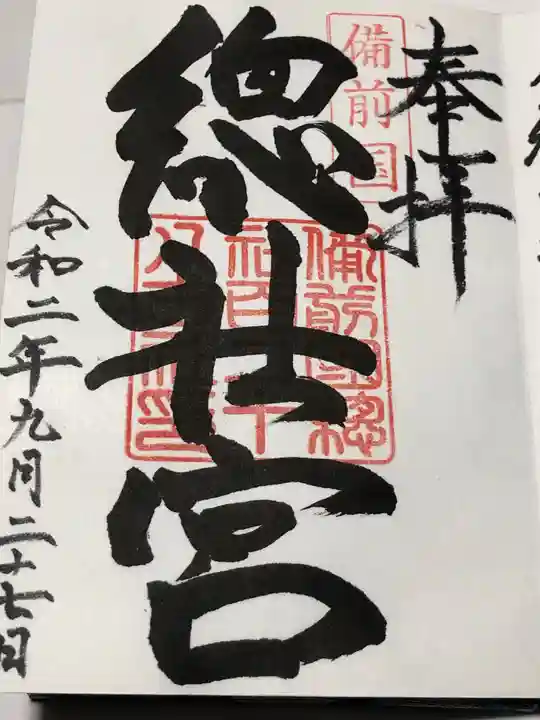 奉拝
備前国
總社宮
備前國總
令和二年九月二十七日